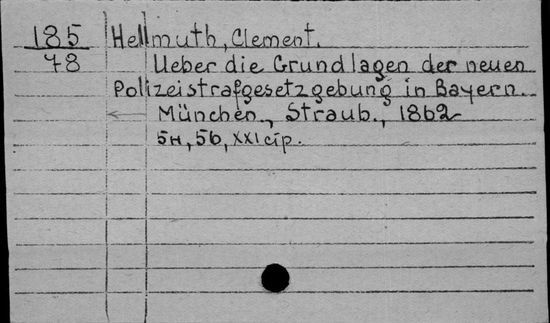 185 Hellmuth, Clement.
78 Ueber die Grundlagen der neuen
Polizeistrafgesetzgebung in Bayern.
München, Straub., 1862
5н, 56, XXI стр.